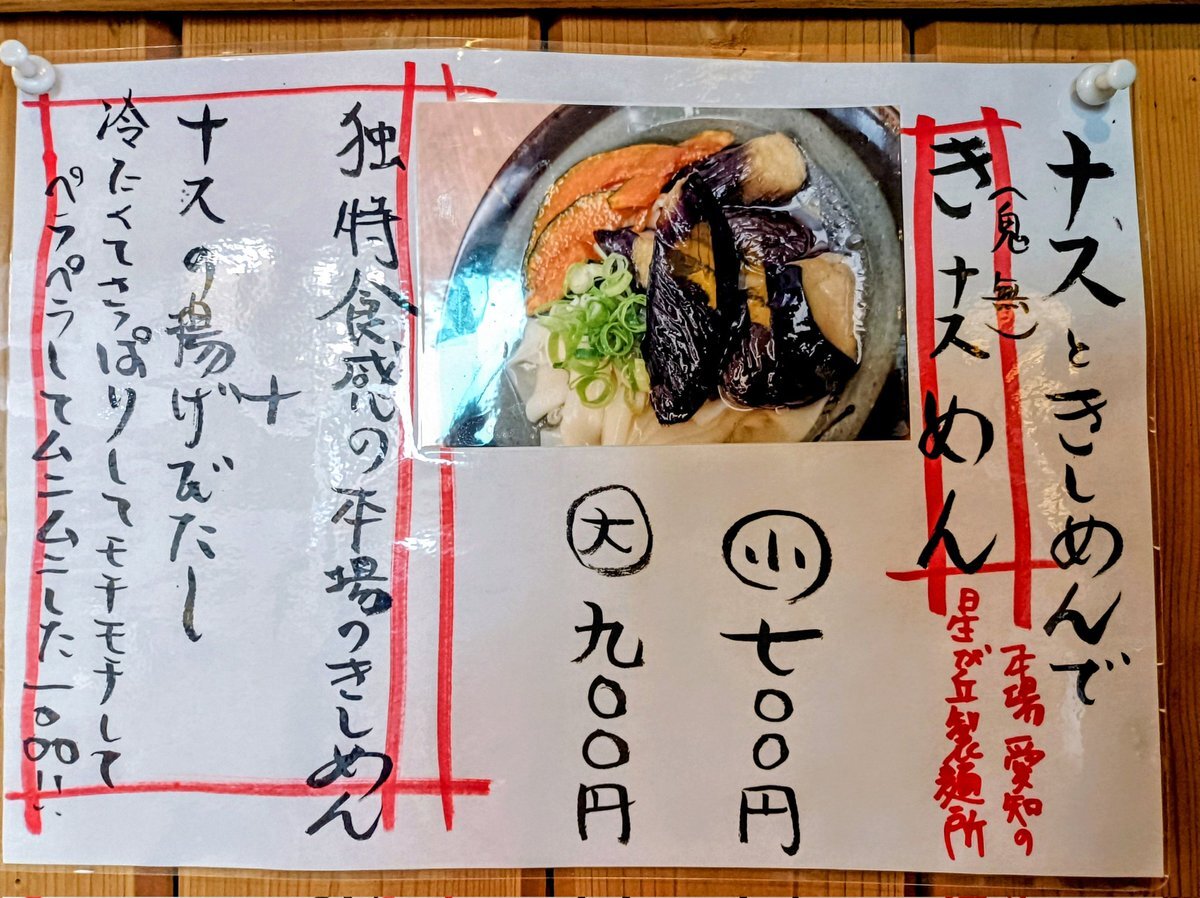 ナスときしめんで
きナスめん
(鬼無)
本場愛知の
星が丘製麺所
小 七〇〇円
大 九〇〇円
独特食感の本場のきしめん
＋
ナスの揚げびたし
冷たくてさっぱりしてモチモチして
ペラペラしてムニムニした一〇〇